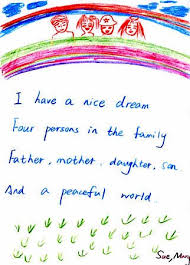 I have a nice dream
Four persons in the family
Father, mother, daughter, son
And a peaceful world.
Sue,